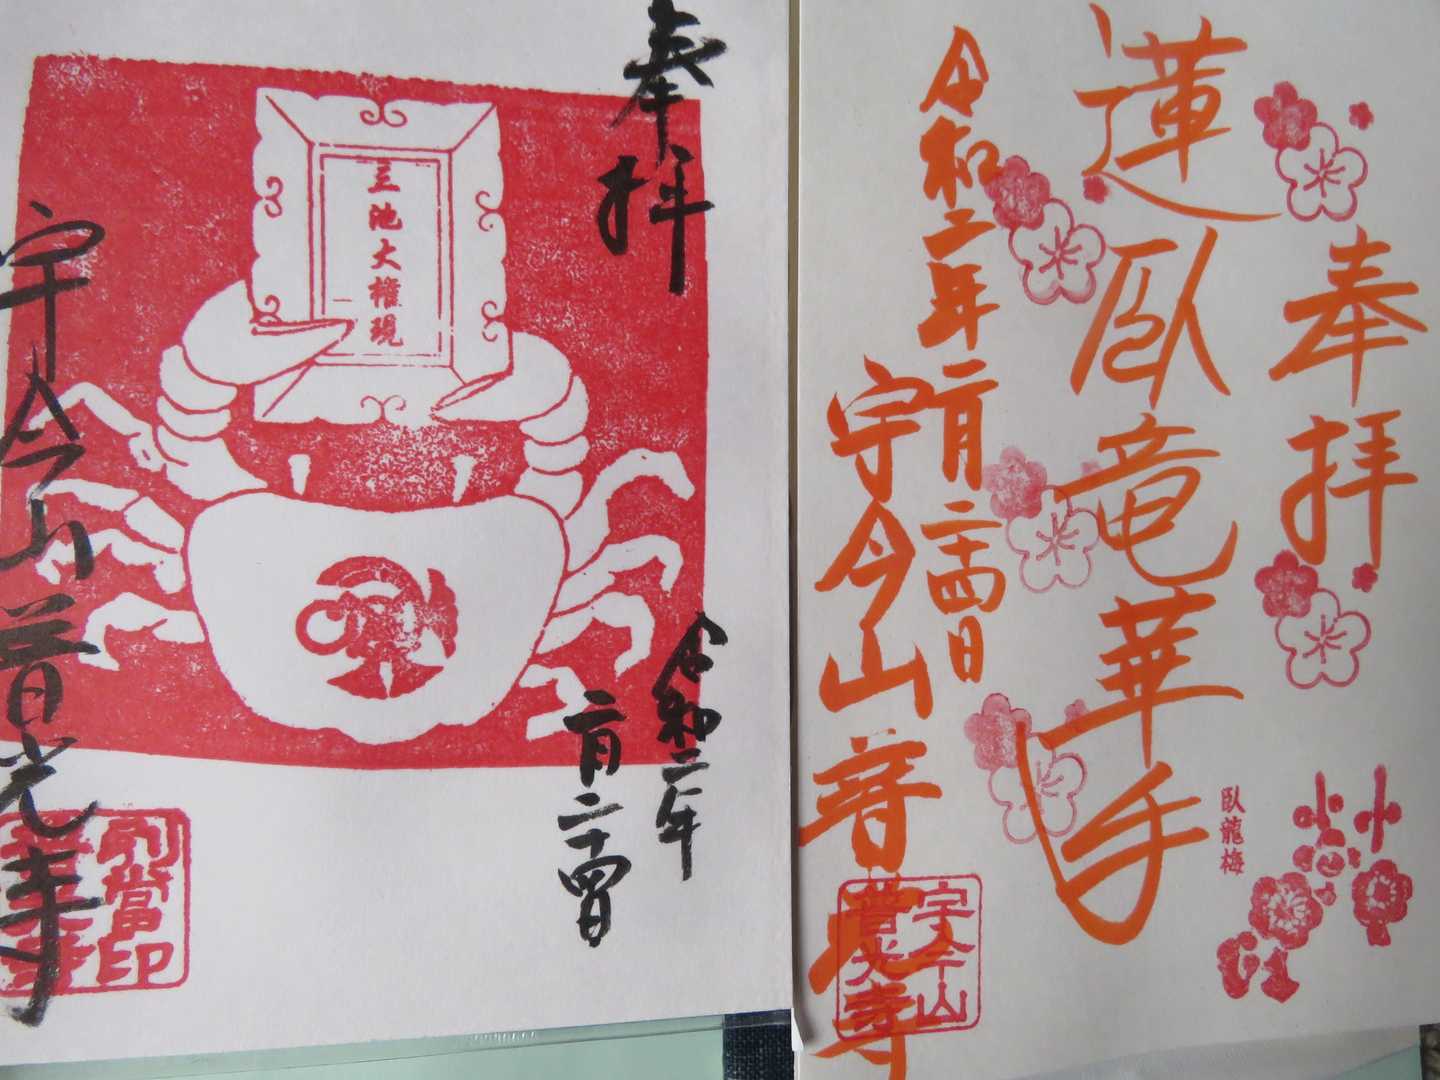 奉拝
三池大権現
令和二年
二月二十四日
宇今山普光寺
別當印
奉拝
蓮臥竜華手
令和二年二月二十四日
宇今山普光寺
宇今山
普光寺
臥龍梅